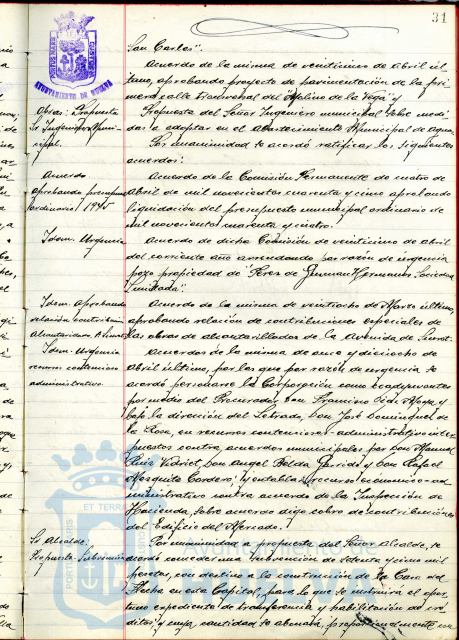 31
San Carlos".
Acuerdo de la misma de veinticinco de abril úl-
timo, aprobando proyecto de pavimentación de la pri-
mera calle transversal del "Molino de la Vega" y
Propuesta del Señor Ingeniero municipal sobre medi-
das a adoptar en el Abastecimiento Municipal de Aguas.
Por unanimidad se acordó ratificar los siguientes
acuerdos:
Acuerdo de la Comisión Permanente de cuatro de
abril de mil novecientos cuarenta y cinco aprobando
liquidación del presupuesto municipal ordinario de
mil novecientos cuarenta y cuatro.
Acuerdo de dicha Comisión de veinticinco de abril
del corriente año arrendando por razón de urgencia
pozo propiedad de "Pérez de Guzmán Hermanos, Sociedad
Limitada".
Acuerdo de la misma de veintiocho de Marzo último,
aprobando relación de contribuciones especiales de
las obras de alcantarillado de la Avenida de
Acuerdos de la misma de once y dieciocho de
Abril último, por los que por razón de urgencia se
acordó personarse la Corporación como coadyuvantes
por medio del Procurador, Don Francisco y
bajo la dirección del Letrado, Don José Domínguez de
la Rosa, en recursos contencioso-administrativo inter-
puestos contra acuerdos municipales por Don Manuel
Ruiz Don Angel Belda Garrido y Don Rafael
Mosquito Cordero; y entablar recurso económico-ad-
ministrativo contra acuerdo de la Inspección de
Hacienda, sobre acuerdo digo cobro de contribución
del Edificio del Mercado.
Por unanimidad a propuesta del Señor Alcalde, se
acordó conceder una subvención de setenta y cinco mil
pesetas, con destino a la construcción de la Casa del
Flecha en esta Capital, para lo que se instruirá el opor-
tuno expediente de transferencia y habilitación de cré-
ditos y cuya cantidad se abonará, proporcionalmente en
AYUNTAMIENTO DE HUELVA
Obras: Propuesta
Sr. Ingeniero Muni-
cipal.
Acuerdo
aprobando presupuesto
ordinario 1945
Idem. Urgencia
Idem. Aprobando
relación contribución
Alcantarillado
Idem. Urgencia
recurso contencioso
administrativo.
Sr. Alcalde:
Propuesta Subvención
Ayuntamiento de